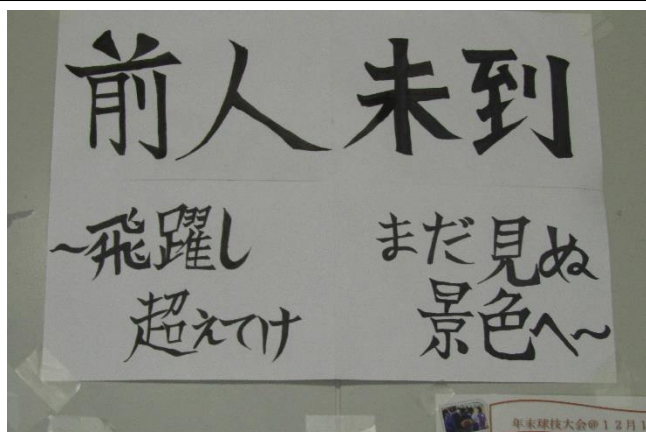 前人未到
〜飛躍し
超えてけ
まだ見ぬ
景色へ〜
年末球技大会@12月1